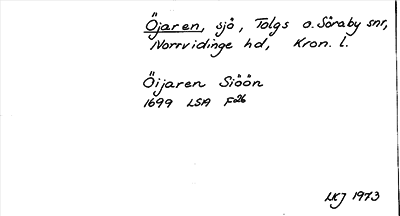 Öjaren, sjö, Tolgs o. Söraby snr,
Norrvidinge hd, Kron. l.
Öijaren Siöön
1699 LSA F26
1973